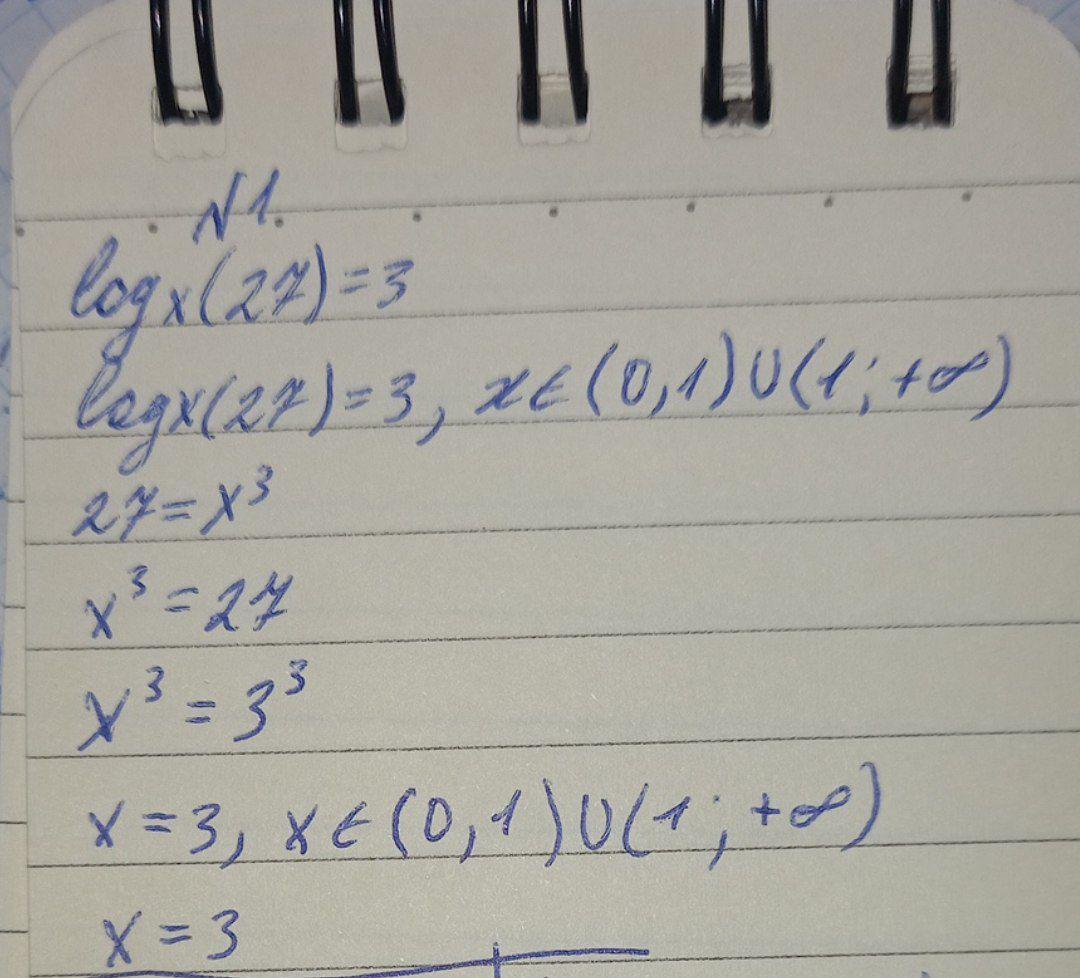 N1.
logₓ(27)=3
logx(27)=3, x∈(0,1)∪(1;+∞)
27=x³
x³=27
x³=3³
x=3, x∈(0,1)∪(1;+∞)
x=3